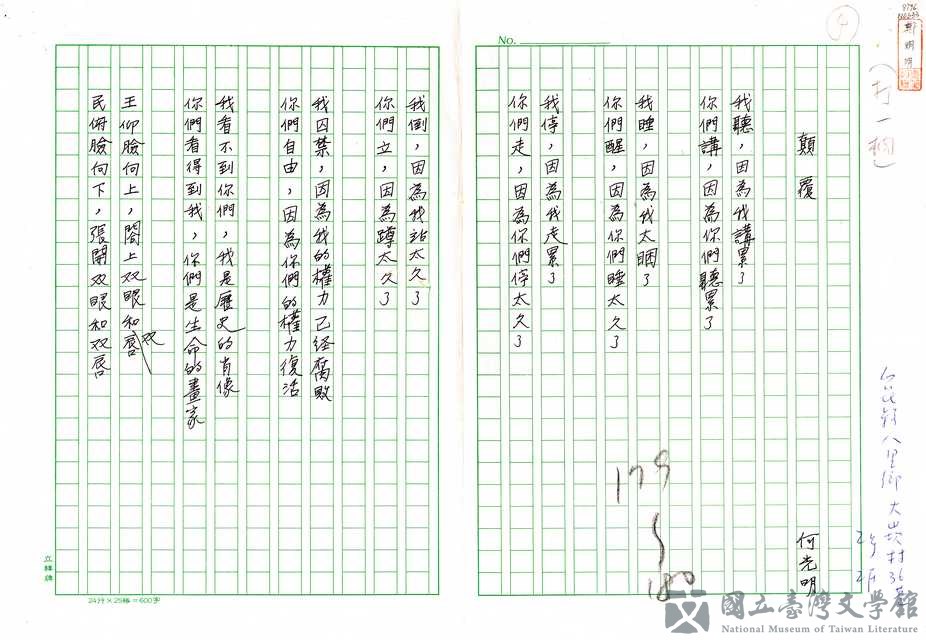 No.
顛覆
何光明
我聽，因為我講累了
你們講，因為你們聽累了
我睡，因為我太睏了
你們醒，因為你們睡太久了
我停，因為我走累了
你們走，因為你們停太久了
我倒，因為我站太久了
你們立，因為蹲太久了
我囚禁，因為我的權力已经腐敗
你們自由，因為你們的權力復活
我看不到你們，我是歷史的肖像
你們看得到我，你們是生命的畫家
王仰臉向上，閤上双眼和双唇
民俯臉向下，張開双眼和双唇
24行×25格=600字
179
180
國立臺灣文學館
National Museum of Taiwan Literature